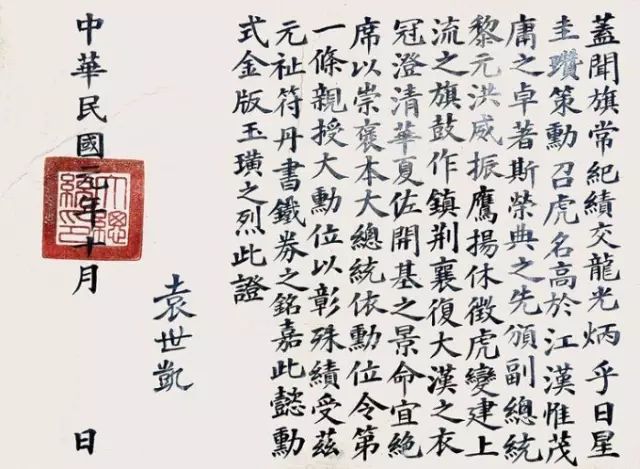 蓋聞旗常紀績交龍光炳乎日星
圭瓚策勳召虎名高於江漢惟茂
庸之卓著斯榮典之先頒副總統
黎元洪威振鷹揚休徵虎變建上
流之旗鼓作鎮荊襄復大漢之衣
冠澄清華夏佐開基之景命宜絕
席以崇褒本大總統依勳位令第
一條親授大勳位以彰殊績受茲
元祉符丹書鐵券之銘嘉此懿勳
式金版玉璜之烈此證
袁世凱
中華民國元年十月 日
大總統印